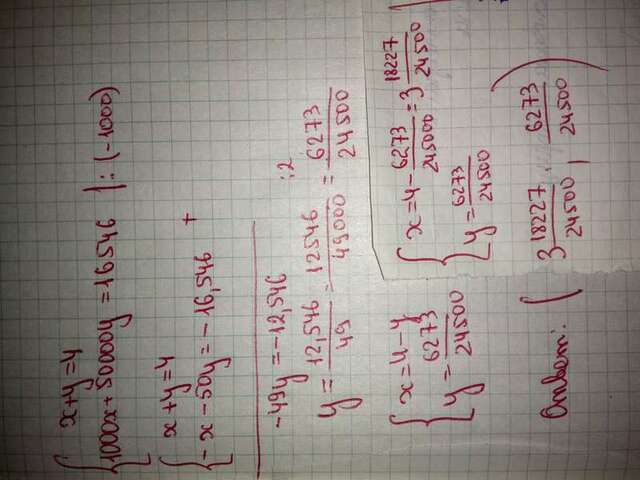 x+y=4
1000x+50000y=16546 |:(-1000)
x+y=4
-x-50y=-16,546 +
-49y=-12,546
y=12,546/49=12546/49000 :2 =6273/24500
x=4-y
y=6273/24500
x=4-6273/245000=3 18227/24500
y=6273/24500
Ответ: (3 18227/24500; 6273/24500)